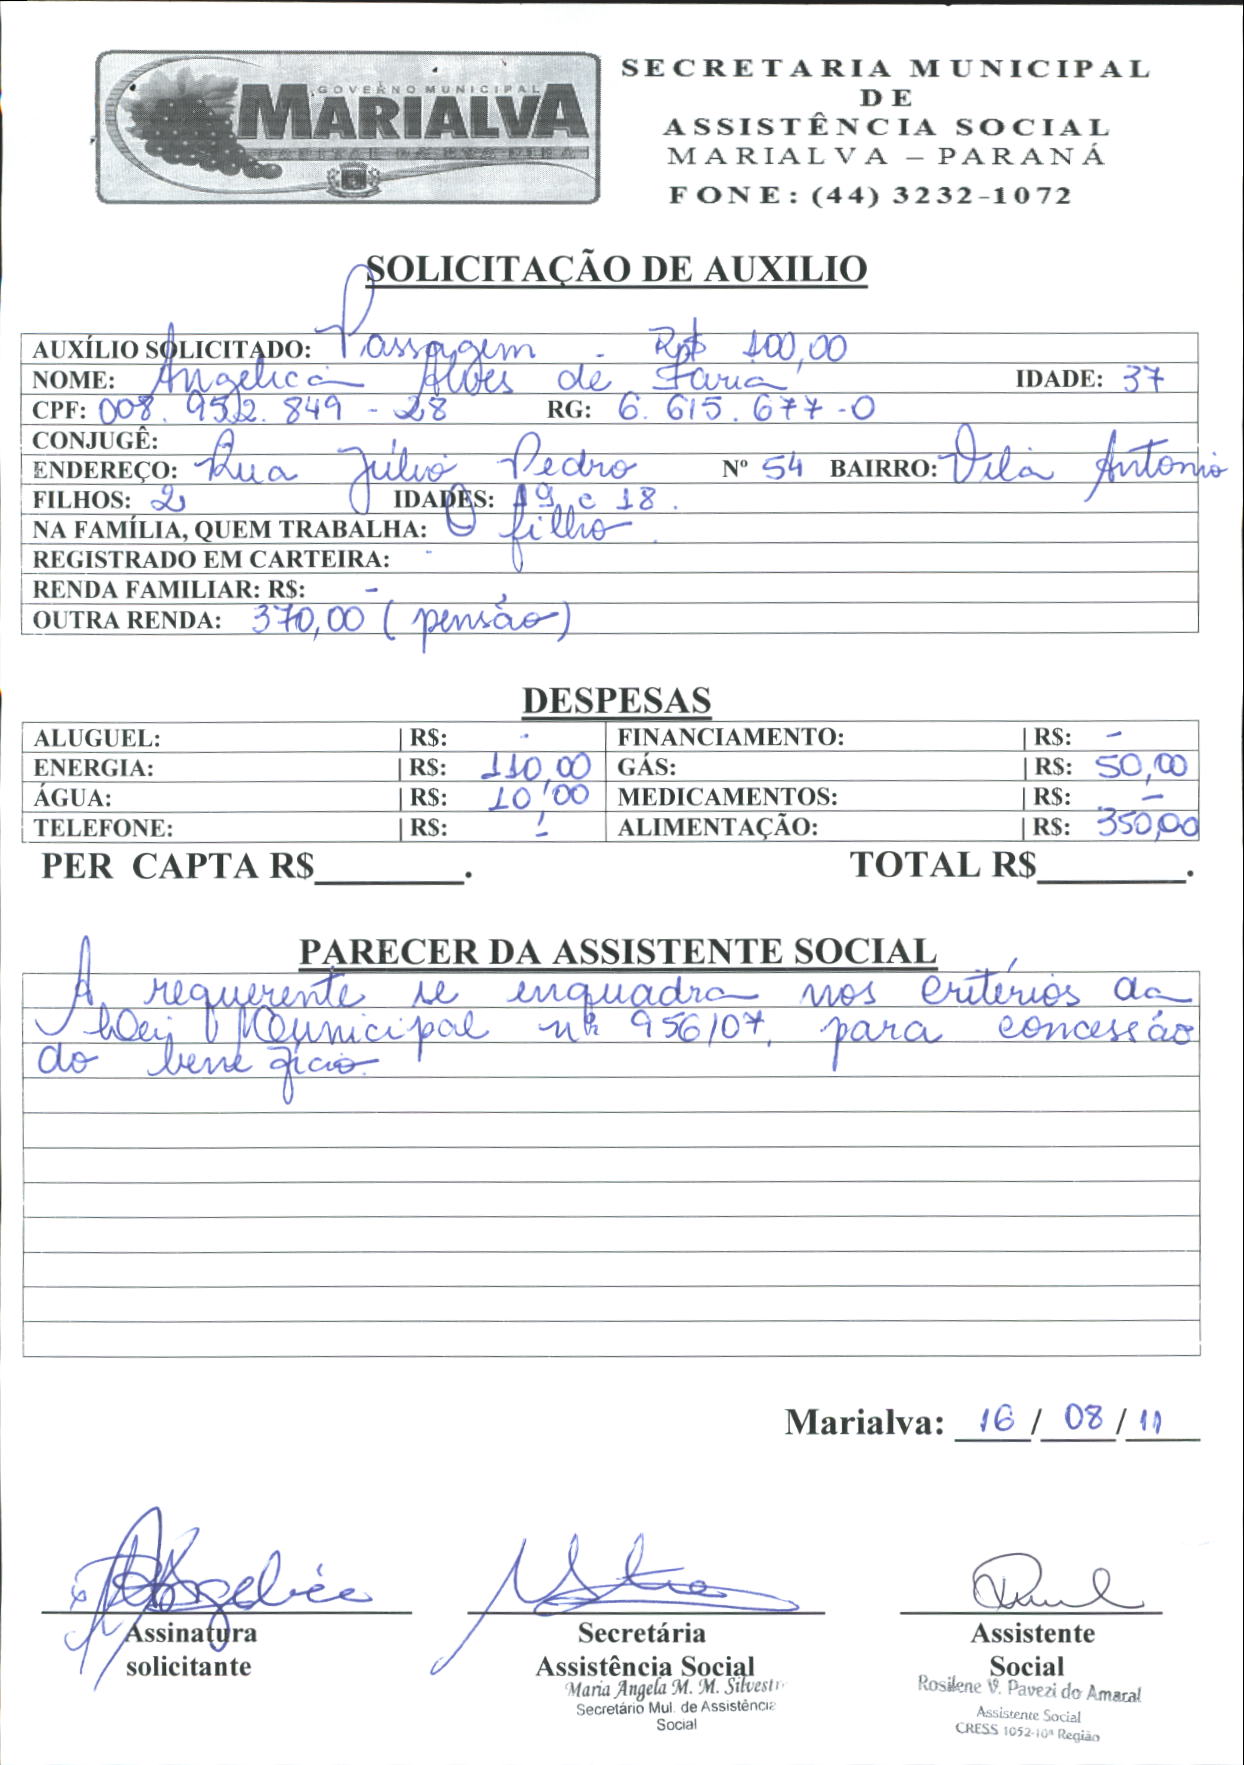 GOVERNO MUNICIPAL
MARIALVA
CAPITAL DA UVA FINA
SECRETARIA MUNICIPAL
DE
ASSISTÊNCIA SOCIAL
MARIALVA – PARANÁ
FONE: (44) 3232-1072
SOLICITAÇÃO DE AUXILIO
AUXÍLIO SOLICITADO: Passagem - R$ 100,00
NOME: Angelica Alves de Faria IDADE: 37
CPF: 008.952.849-28 RG: 6.615.677-0
CONJUGÊ:
ENDEREÇO: Rua Júlio Pedro Nº 54 BAIRRO: Vila Antonio
FILHOS: 2 IDADES: 19 e 18.
NA FAMÍLIA, QUEM TRABALHA: O filho
REGISTRADO EM CARTEIRA: -
RENDA FAMILIAR: R$: -
OUTRA RENDA: 370,00 (pensão)
DESPESAS
ALUGUEL: | R$: - FINANCIAMENTO: | R$: -
ENERGIA: | R$: 110,00 GÁS: | R$: 50,00
ÁGUA: | R$: 10,00 MEDICAMENTOS: | R$: -
TELEFONE: | R$: - ALIMENTAÇÃO: | R$: 350,00
PER CAPTA R$________. TOTAL R$________.
PARECER DA ASSISTENTE SOCIAL
A requerente se enquadra nos critérios da
Lei Municipal nº 956/07, para concessão
do benefício.
Marialva: 16 / 08 / 11
Angelica
Assinatura
solicitante
Secretária
Assistência Social
Maria Angela M. M. Silvestr
Secretário Mul. de Assistência
Social
Assistente
Social
Rosilene V. Pavezi do Amaral
Assistente Social
CRESS 1052-10ª Região